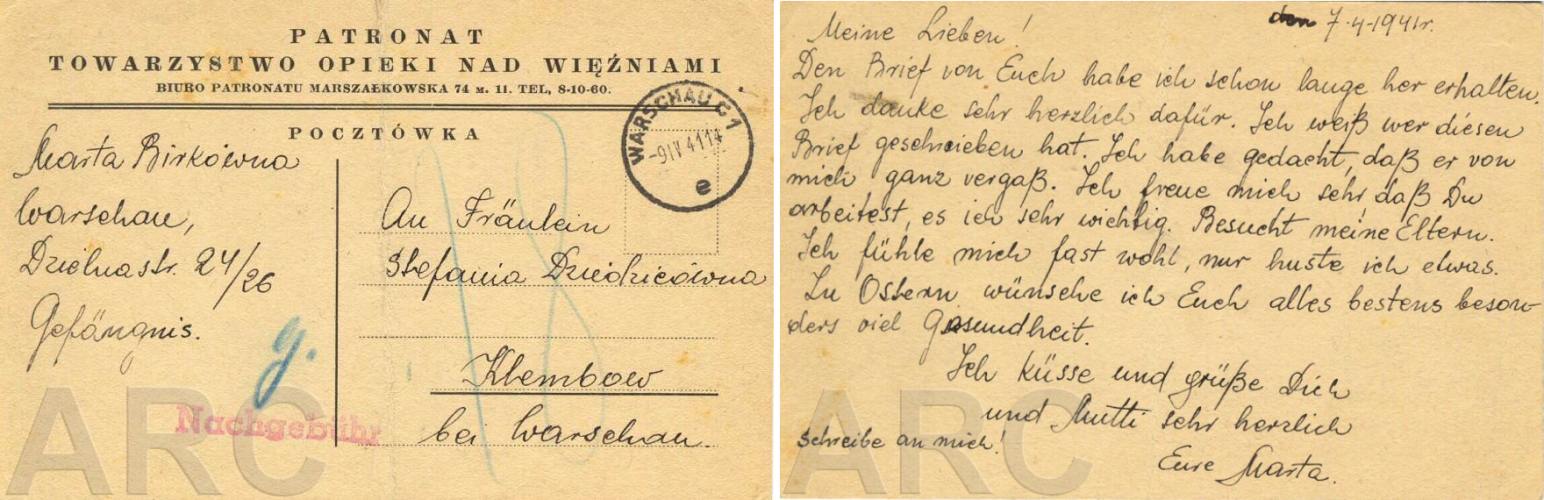 PATRONAT
TOWARZYSTWO OPIEKI NAD WIĘŹNIAMI
BIURO PATRONATU MARSZAŁKOWSKA 74 M. 11. TEL, 8-10-60.
POCZTÓWKA
WARSCHAU C1
-9IV 41 14
e
Marta Birkówna
Warschau,
Dzielnastr. 24/26
Gefängnis.
g.
Nachgebühr
An Fräulein
Stefania Dziedzicówna
Klembow
bei Warschau.
ARC
den 7·4-1941r.
Meine Lieben!
Den Brief von Euch habe ich schon lange her erhalten.
Ich danke sehr herzlich dafür. Ich weiß wer diesen
Brief geschrieben hat. Ich habe gedacht, daß er von
mich ganz vergaß. Ich freue mich sehr daß Du
arbeitest, es ich sehr wichtig. Besucht meine Eltern.
Ich fühle mich fast wohl, nur huste ich etwas.
Zu Ostern wünsche ich Euch alles bestens beson-
ders viel Gesundheit.
Ich küsse und grüße Dich
und Mutti sehr herzlich
schreibe an mich!
Eure Marta.
ARC